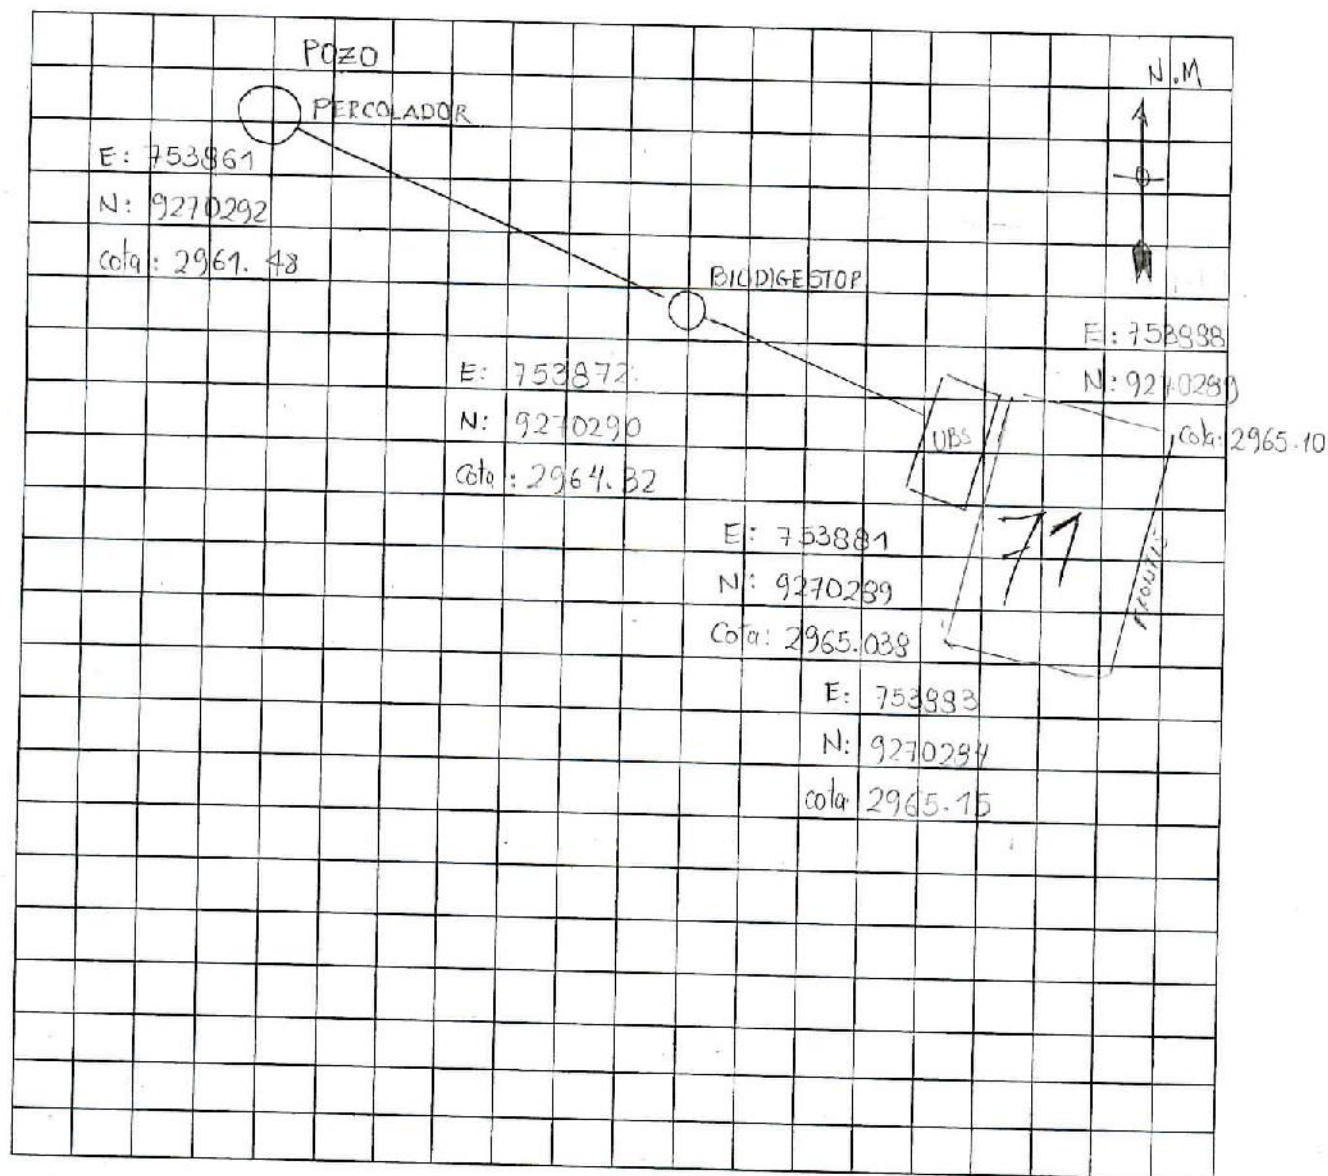 POZO
PERCOLADOR
N.M
E: 753861
N: 9270292
cota: 2961.48
BIODIGESTOR
E: 753888
N: 9270289
cota: 2965.10
E: 753872
N: 9270290
cota: 2964.32
UBS
E: 753881
N: 9270289
Cota: 2965.038
71
E: 753883
N: 9270284
cota 2965.15